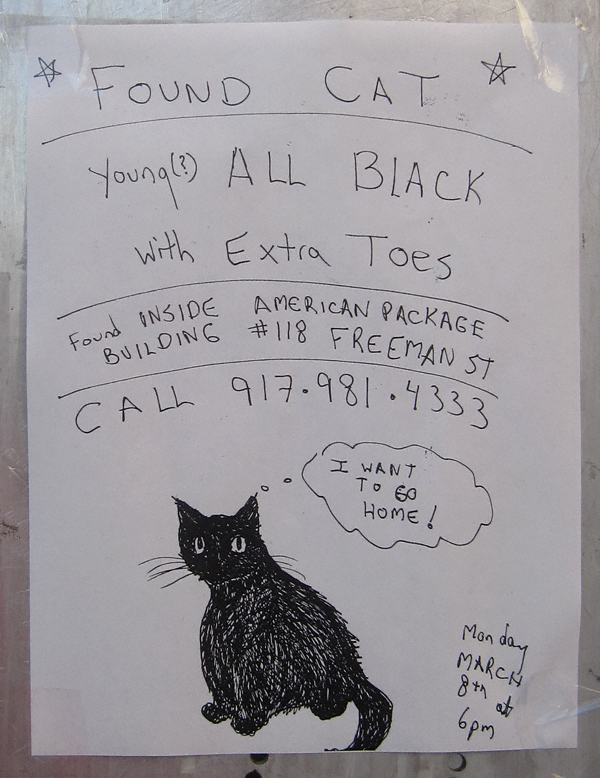 FOUND CAT
Young(?) ALL BLACK
with Extra Toes
Found INSIDE AMERICAN PACKAGE
BUILDING #118 FREEMAN ST
CALL 917.981.4333
I WANT
TO GO
HOME!
Monday
MARCH
8th at
6pm